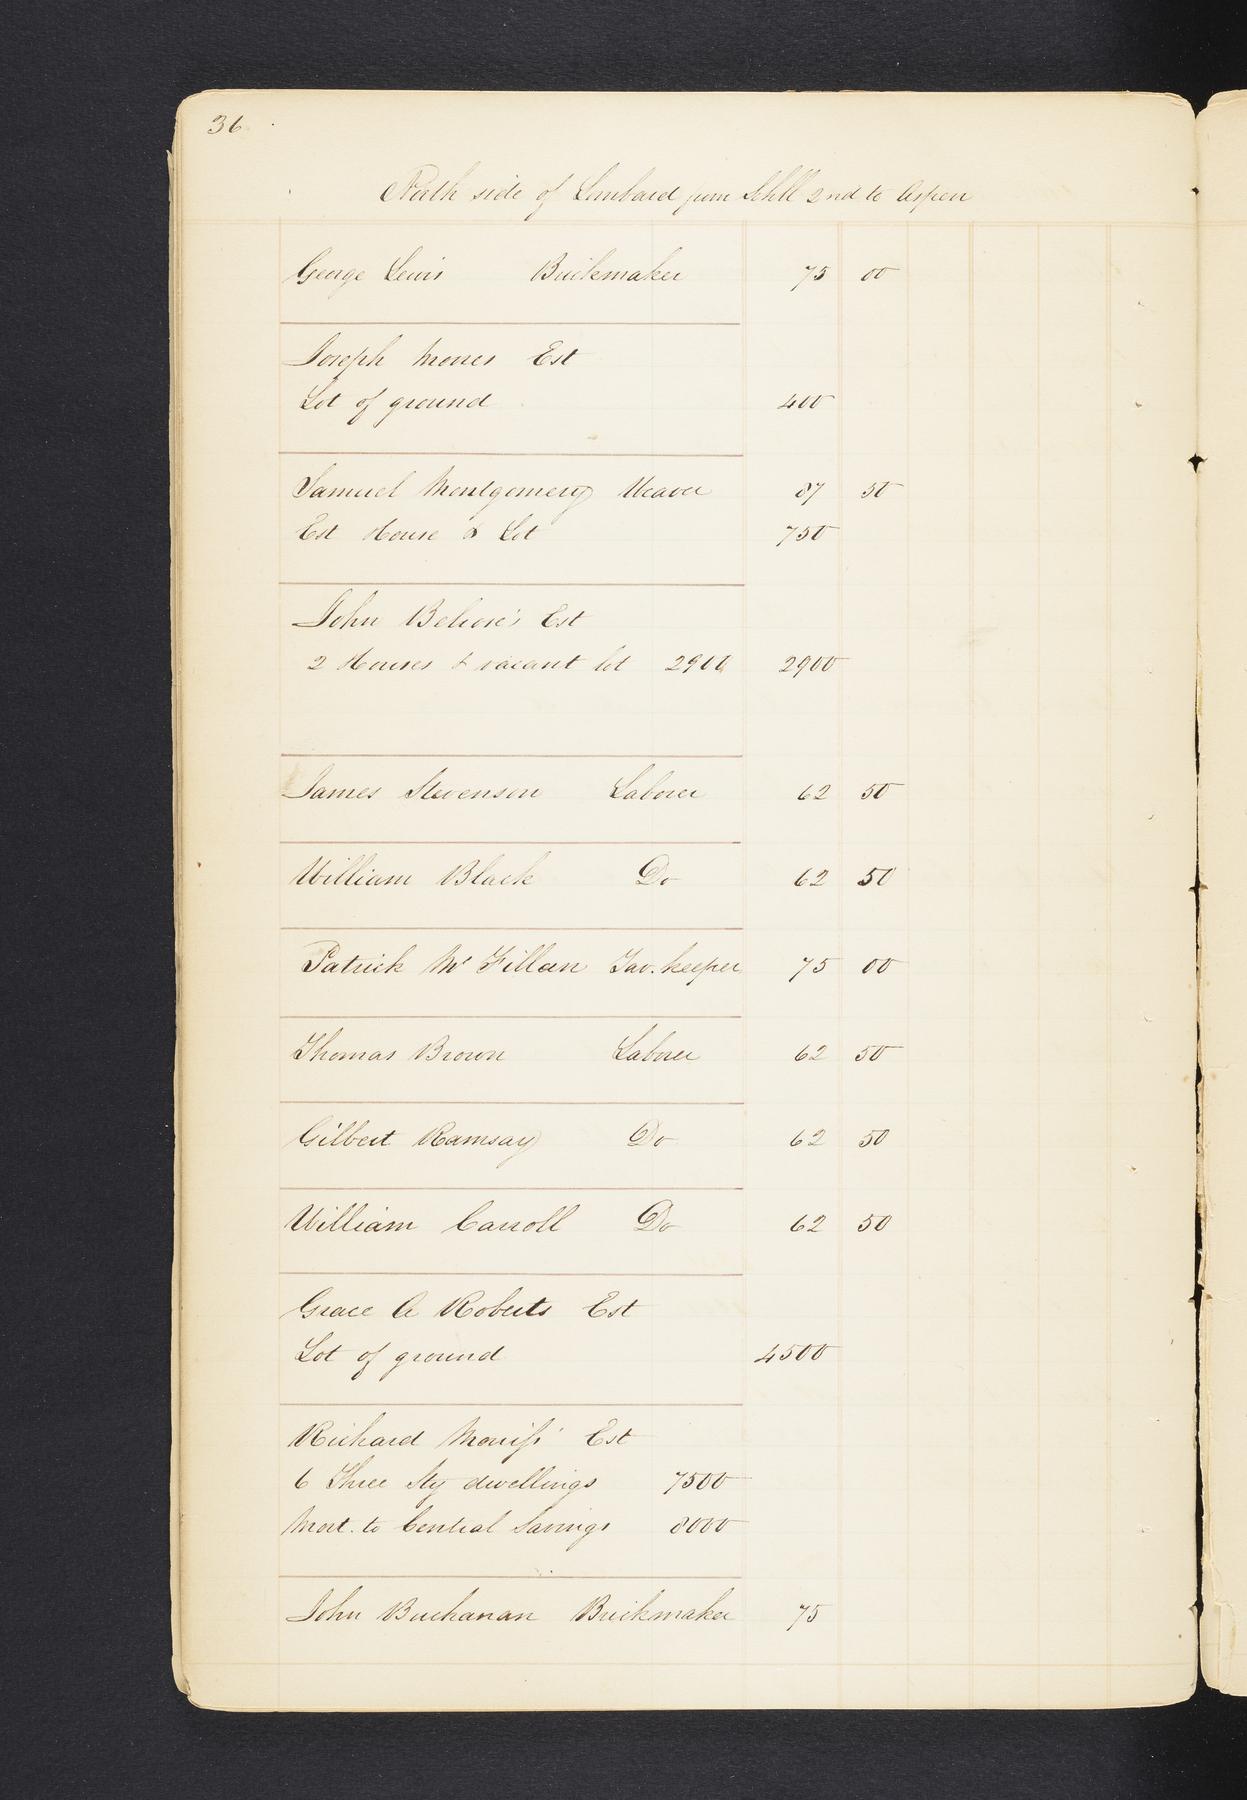 36
North side of Lombard from Schll 2nd to Aspen
George Lewis Brickmaker 75 00
Joseph Est
Lot of ground 400
Samuel Montgomery Weaver 87 50
Est House & Lot 750
John Est
2 Houses & vacant lot 2900 2900
James Stevenson Laborer 62 50
William Black Do 62 50
Patrick Mc Fillan Tav. keeper 75 00
Thomas Brown Laborer 62 50
Gilbert Ramsay Do 62 50
William Carroll Do 62 50
Grace A Roberts Est
Lot of ground 4500
Richard Est
6 Three Sty dwellings 7500
Mort. to Central Savings 8000
John Buchanan Brickmaker 75